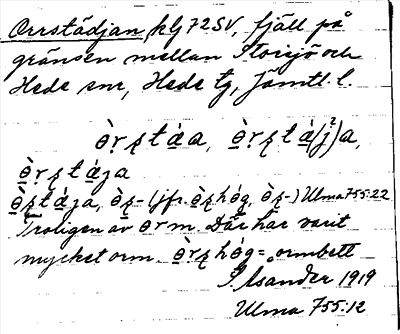 Orrstädjan, klg 72SV, fjäll på
gränsen mellan Storsjö och
Hede snr, Hede tg, Jämtl. l.
ɵ̀r̥ʂtáa, ɵ̀r̥ʂtá(j²)a,
ɵ̀r̥ʂtája
ɵ̀ʂtája, ɵ̀ʂ- (jfr. ɵ̀ʂhóg, ɵ̀ʂ-) Ulma 755:22
Troligen av orm. Där har varit
mycket orm. ɵ̀r̥ʂhóg = ormbett
Asander 1919
Ulma 755:12